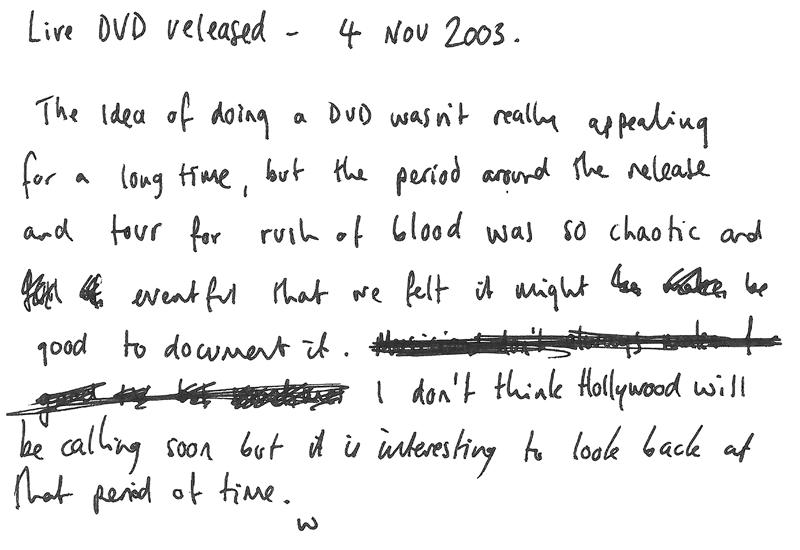 Live DVD released - 4 Nov 2003.
The idea of doing a DVD wasn't really appealing
for a long time, but the period around the release
and tour for rush of blood was so chaotic and
eventful that we felt it might be
good to document it.
I don't think Hollywood will
be calling soon but it is interesting to look back at
that period of time.
w